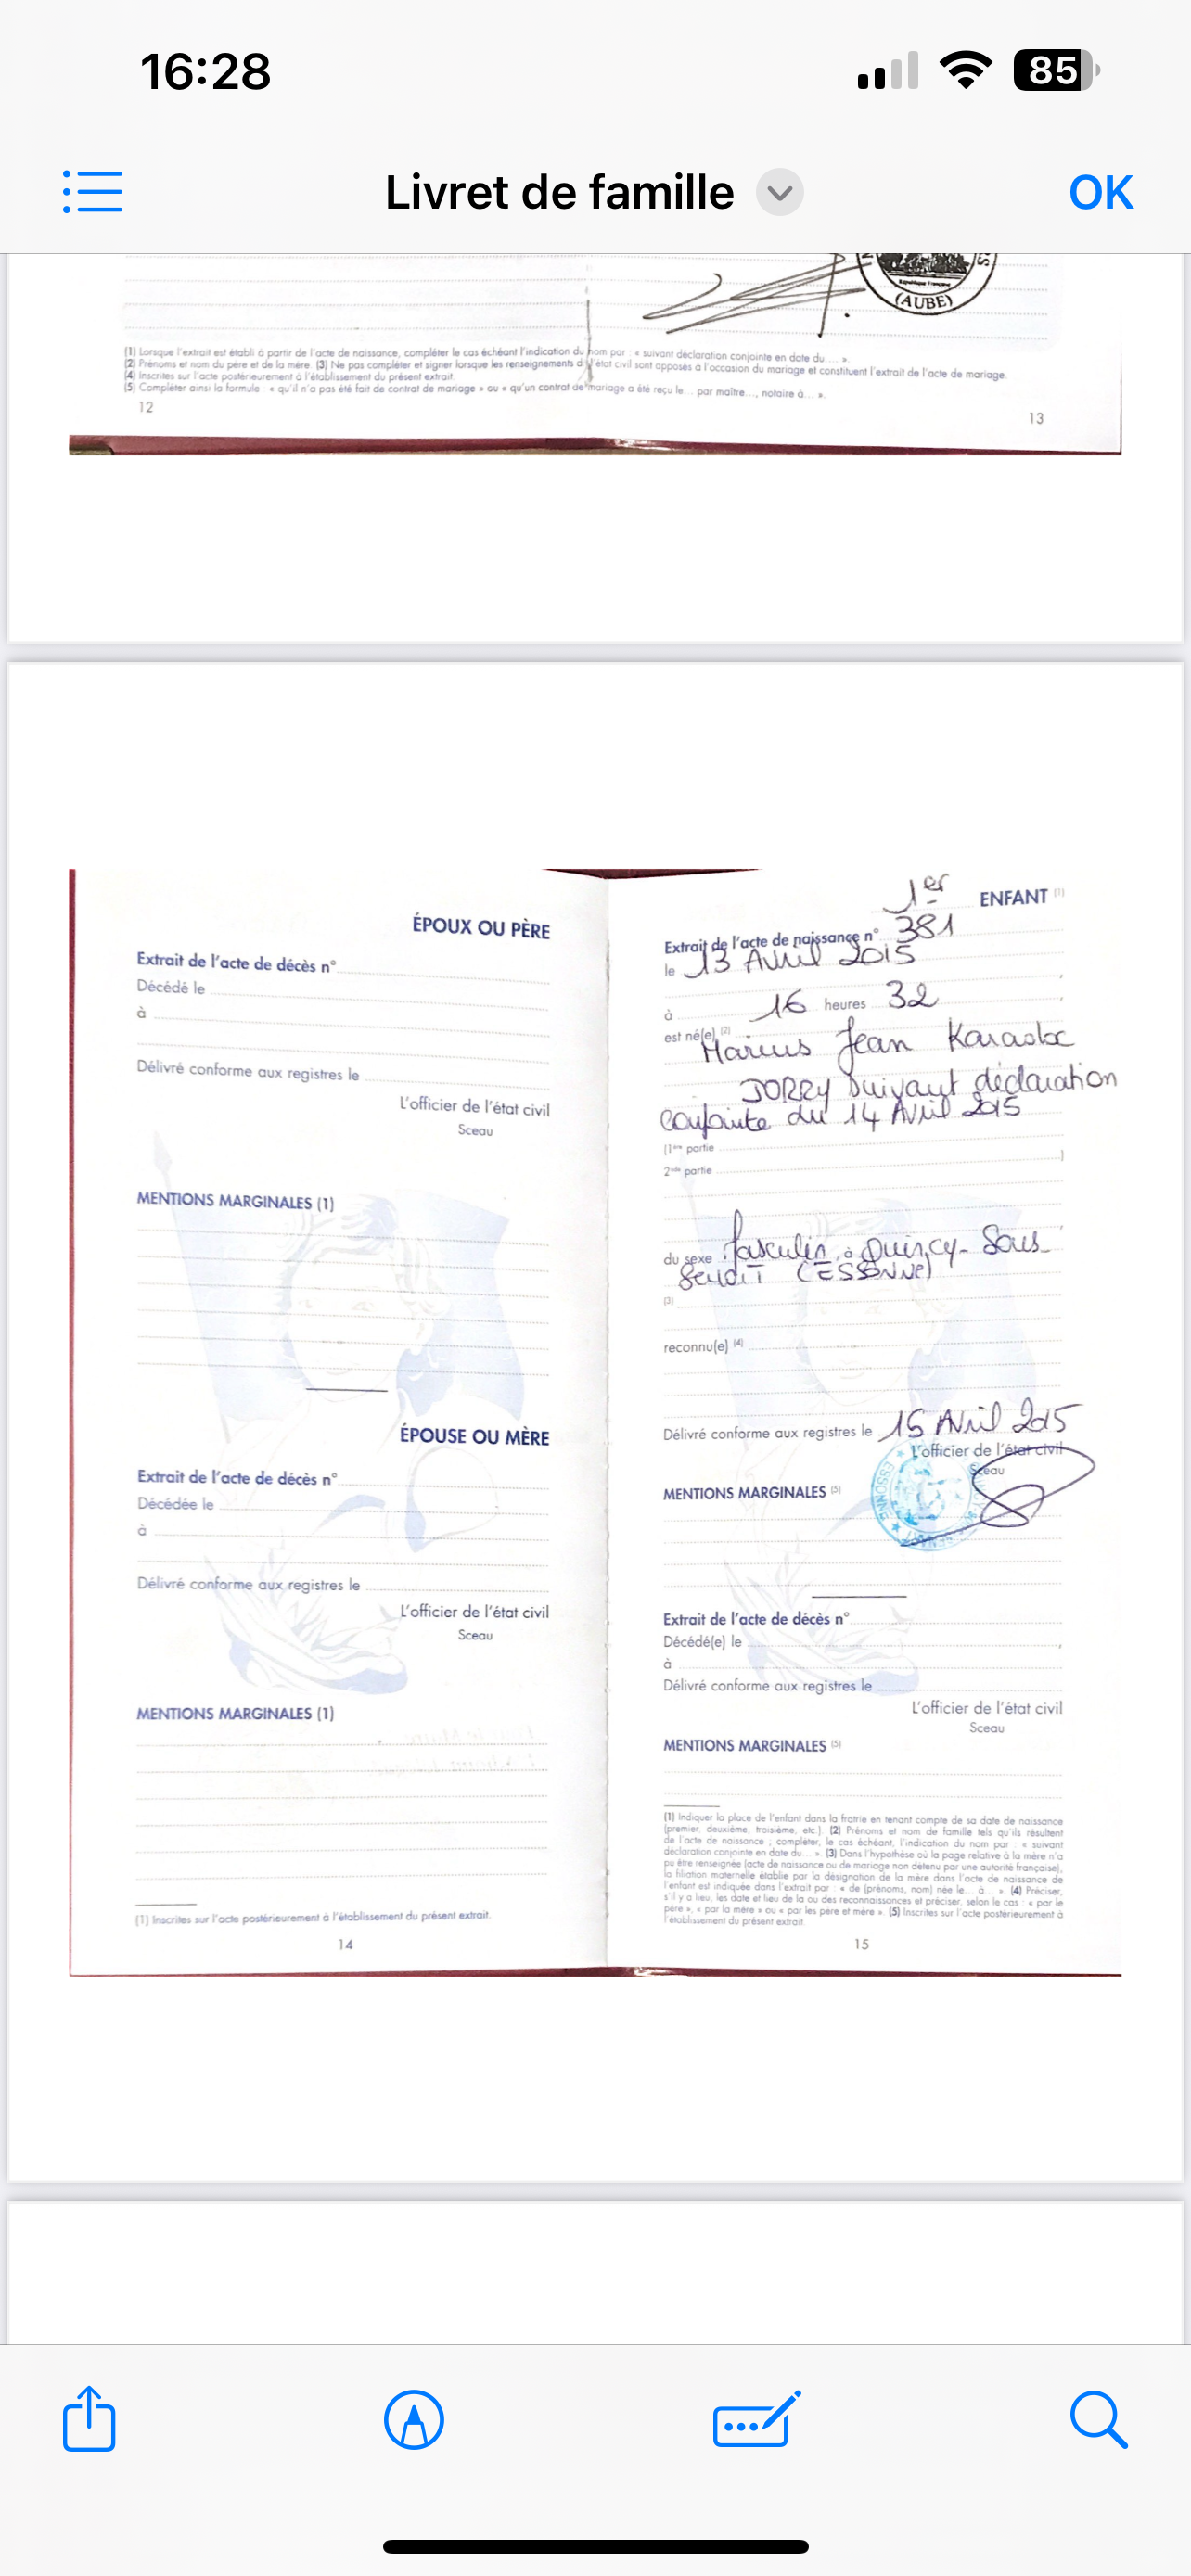 16:28
85
Livret de famille
OK
(AUBE)
(1) Lorsque l'extrait est établi à partir de l'acte de naissance, compléter le cas échéant l'indication du nom par : « suivant déclaration conjointe en date du... ».
(2) Prénoms et nom du père et de la mère. (3) Ne pas compléter et signer lorsque les renseignements d l'état civil sont apposés à l'occasion du mariage et constituent l'extrait de l'acte de mariage.
(4) Inscrites sur l'acte postérieurement à l'établissement du présent extrait.
(5) Compléter ainsi la formule « qu'il n'a pas été fait de contrat de mariage » ou « qu'un contrat de mariage a été reçu le... par maître..., notaire à... ».
12
13
ÉPOUX OU PÈRE
Extrait de l'acte de décès n°
Décédé le
à
Délivré conforme aux registres le
L'officier de l'état civil
Sceau
MENTIONS MARGINALES (1)
ÉPOUSE OU MÈRE
Extrait de l'acte de décès n°
Décédée le
à
Délivré conforme aux registres le
L'officier de l'état civil
Sceau
MENTIONS MARGINALES (1)
(1) Inscrites sur l'acte postérieurement à l'établissement du présent extrait.
14
1er ENFANT (1)
Extrait de l'acte de naissance n° 381
le 13 Avril 2015
à 16 heures 32
est né(e) (2)
Marius Jean
JORRY Suivant déclaration
conjointe du 14 Avril 2015
(1ère partie
2nde partie )
du sexe Masculin, à Quincy-Sous-
Senart (ESSONNE)
(3)
reconnu(e) (4)
Délivré conforme aux registres le 15 Avril 2015
L'officier de l'état civil
Sceau
ESSONNE
MENTIONS MARGINALES (5)
Extrait de l'acte de décès n°
Décédé(e) le
à
Délivré conforme aux registres le
L'officier de l'état civil
Sceau
MENTIONS MARGINALES (5)
(1) Indiquer la place de l'enfant dans la fratrie en tenant compte de sa date de naissance
(premier, deuxième, troisième, etc.). (2) Prénoms et nom de famille tels qu'ils résultent
de l'acte de naissance ; compléter, le cas échéant, l'indication du nom par : « suivant
déclaration conjointe en date du... ». (3) Dans l'hypothèse où la page relative à la mère n'a
pu être renseignée (acte de naissance ou de mariage non détenu par une autorité française),
la filiation maternelle établie par la désignation de la mère dans l'acte de naissance de
l'enfant est indiquée dans l'extrait par : « de (prénoms, nom) née le... à... ». (4) Préciser,
s'il y a lieu, les date et lieu de la ou des reconnaissances et préciser, selon le cas : « par le
père », « par la mère » ou « par les père et mère ». (5) Inscrites sur l'acte postérieurement à
l'établissement du présent extrait.
15